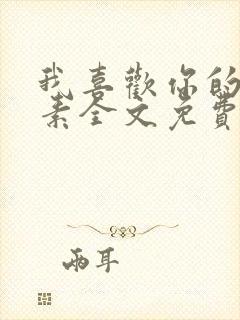 我喜歡你的
素全文免費
兩耳